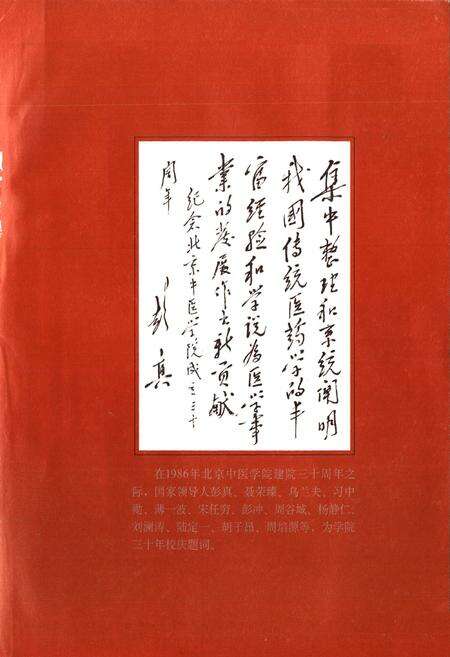 集中整理和系统阐明
我国传统医药学的丰
富经验和学说为医学事
业的发展作出新贡献
纪念北京中医学院成立三十
周年
彭真
在1986年北京中医学院建院三十周年之
际，国家领导人彭真、聂荣臻、乌兰夫、习中
勋、薄一波、宋任穷、彭冲、周谷城、杨静仁、
刘澜涛、陆定一、胡子昂、周培源等，为学院
三十年校庆题词。